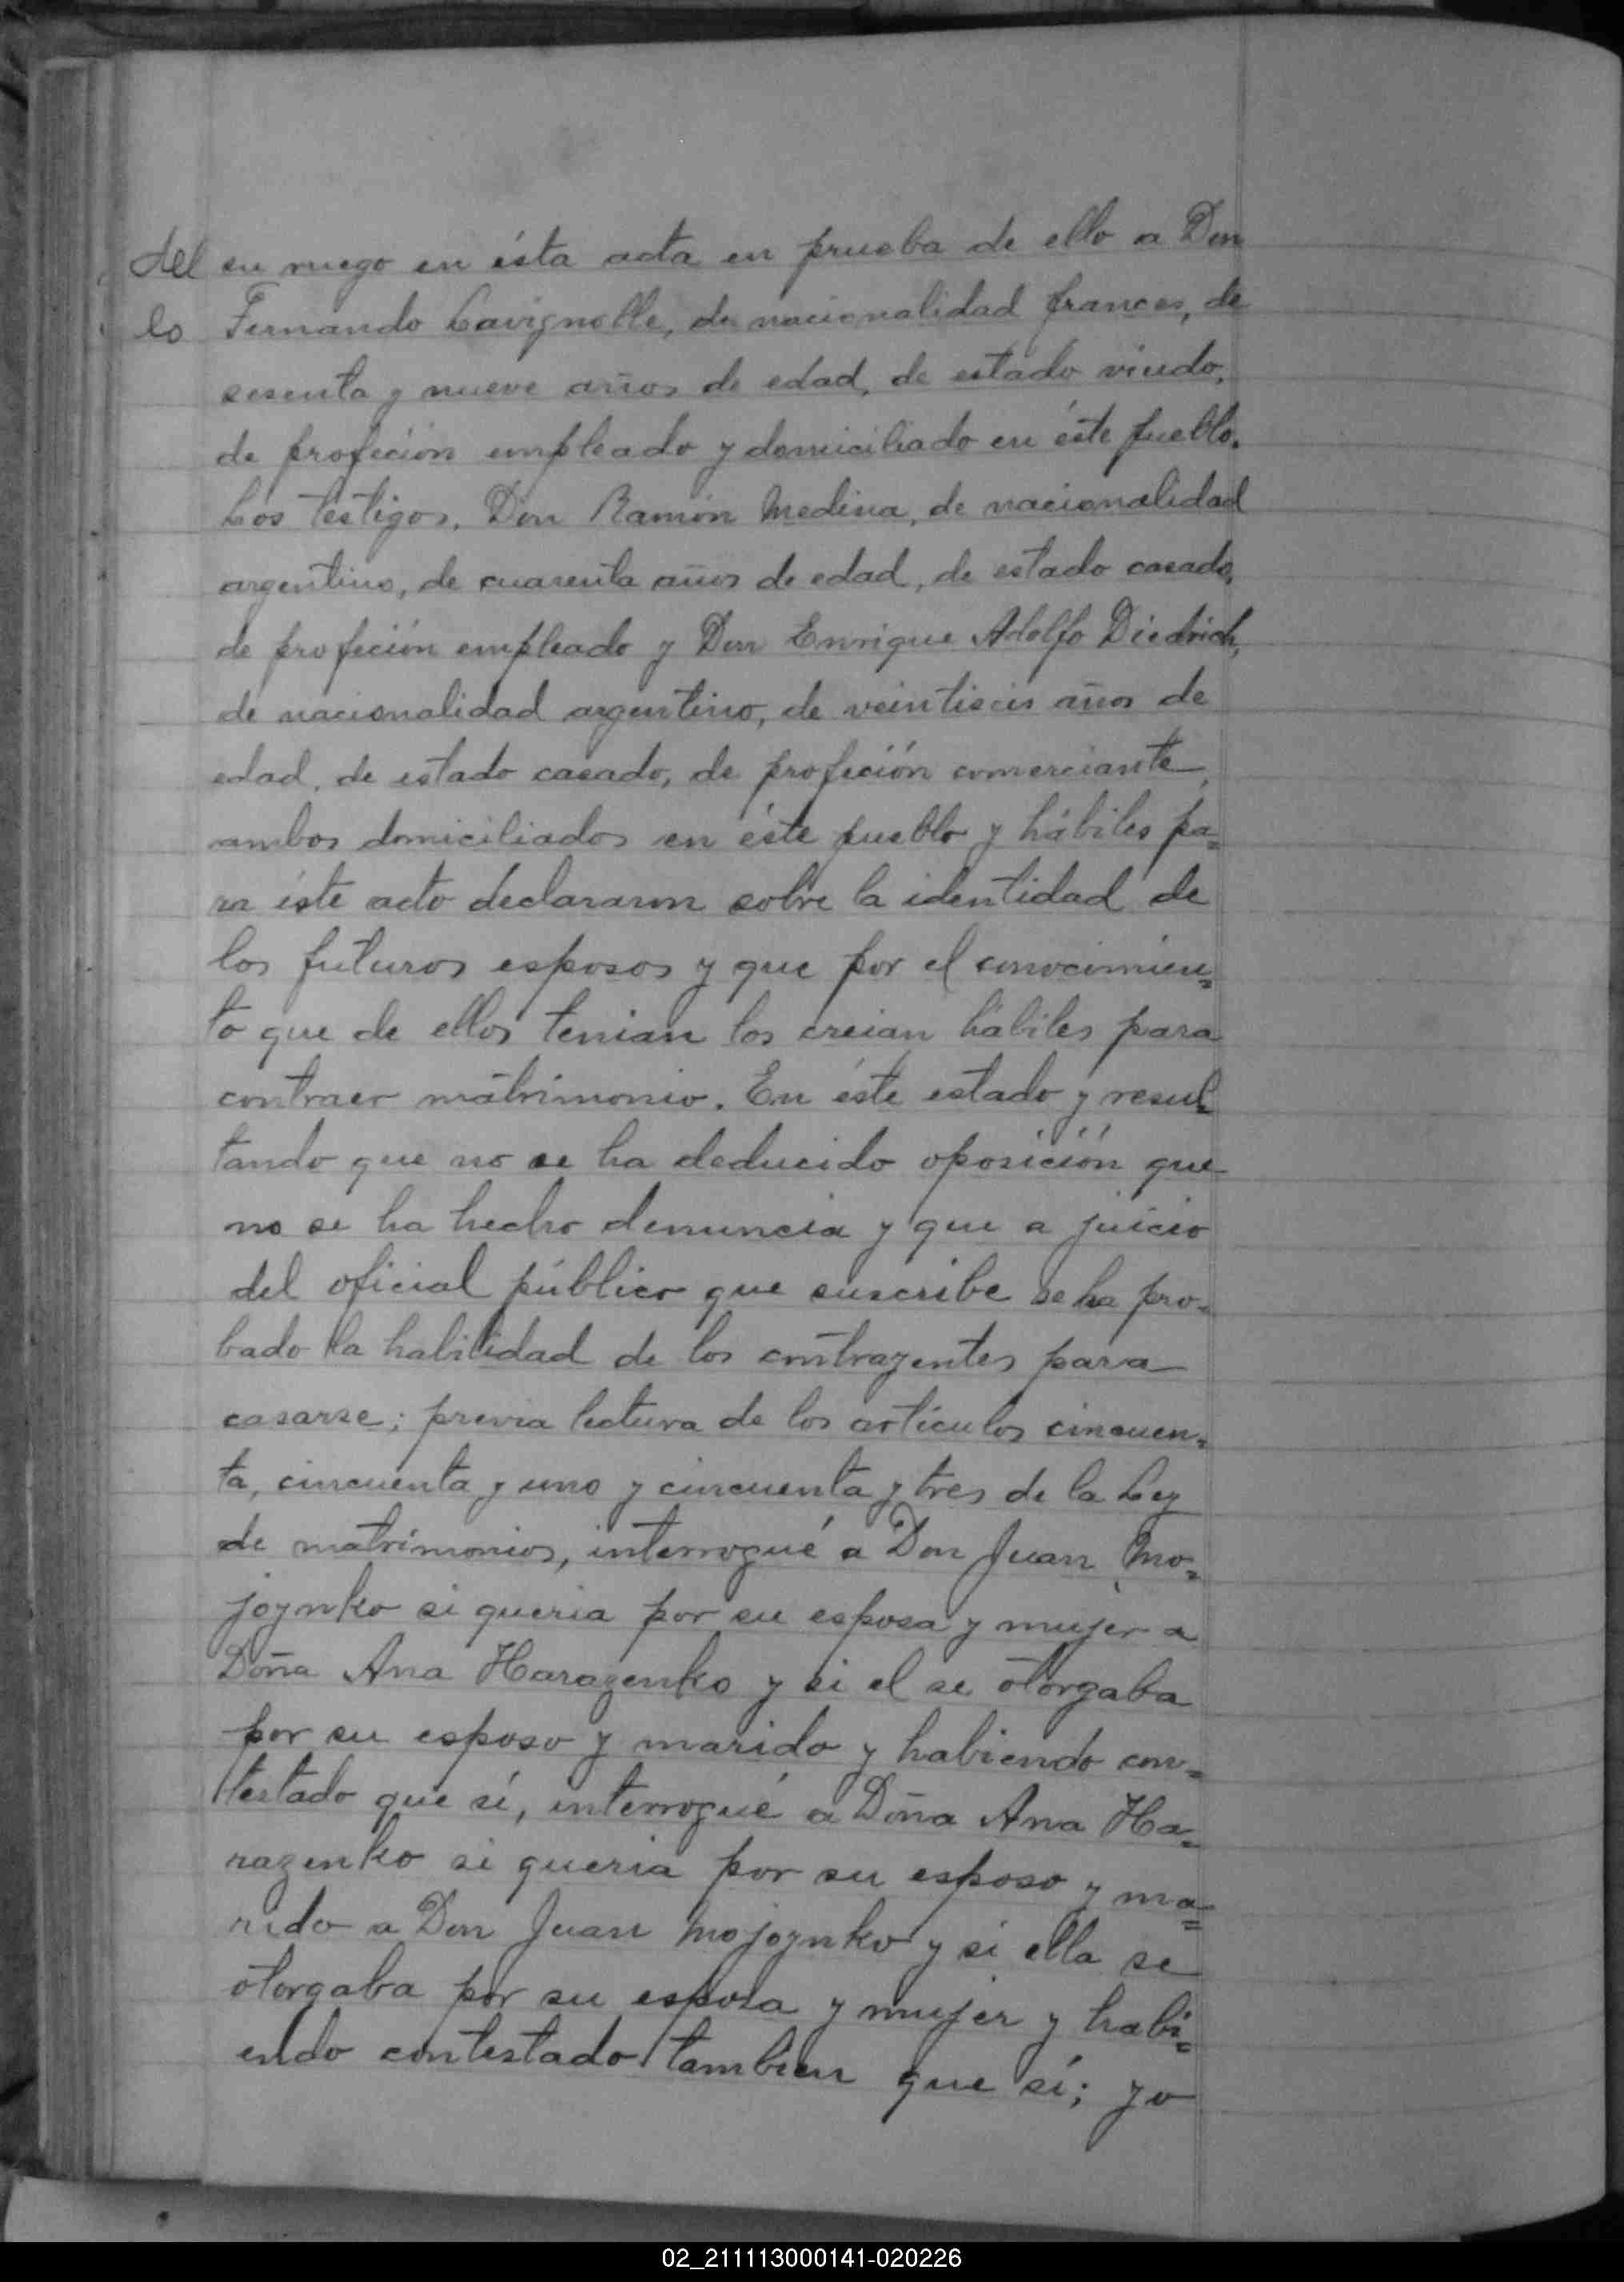 del su ruego en ésta acta en prueba de ello a Don
lo Fernando Lavignolle, de nacionalidad frances, de
sesenta y nueve años de edad, de estado viudo,
de profeción empleado y domiciliado en éste pueblo.
Los testigos, Don Ramón Medina, de nacionalidad
argentino, de cuarenta años de edad, de estado casado,
de profeción empleado y Don Enrique Adolfo Diedrich,
de nacionalidad argentino, de veintiseis años de
edad, de estado casado, de profeción comerciante,
ambos domiciliados en éste pueblo y hábiles pa=
ra éste acto declararon sobre la identidad de
los futuros esposos y que por el conocimien=
to que de ellos tenian los creian hábiles para
contraer matrimonio. En éste estado y resul=
tando que no se ha deducido oposición que
no se ha hecho denuncia y que a juicio
del oficial público que suscribe se ha pro=
bado la habilidad de los contrayentes para
casarse; previa lectura de los artículos cincuen=
ta, cincuenta y uno y cincuenta y tres de la Ley
de matrimonios, interrogué a Don Juan Mo=
joynko si queria por su esposa y mujer a
Doña Ana Harazenko y si el se otorgaba
por su esposo y marido y habiendo con=
testado que sí, interrogué a Doña Ana Ha=
razenko si queria por su esposo y ma=
rido a Don Juan Mojoynko y si ella se
otorgaba por su esposa y mujer y habi=
endo contestado tambien que sí; yo
02_211113000141-020226